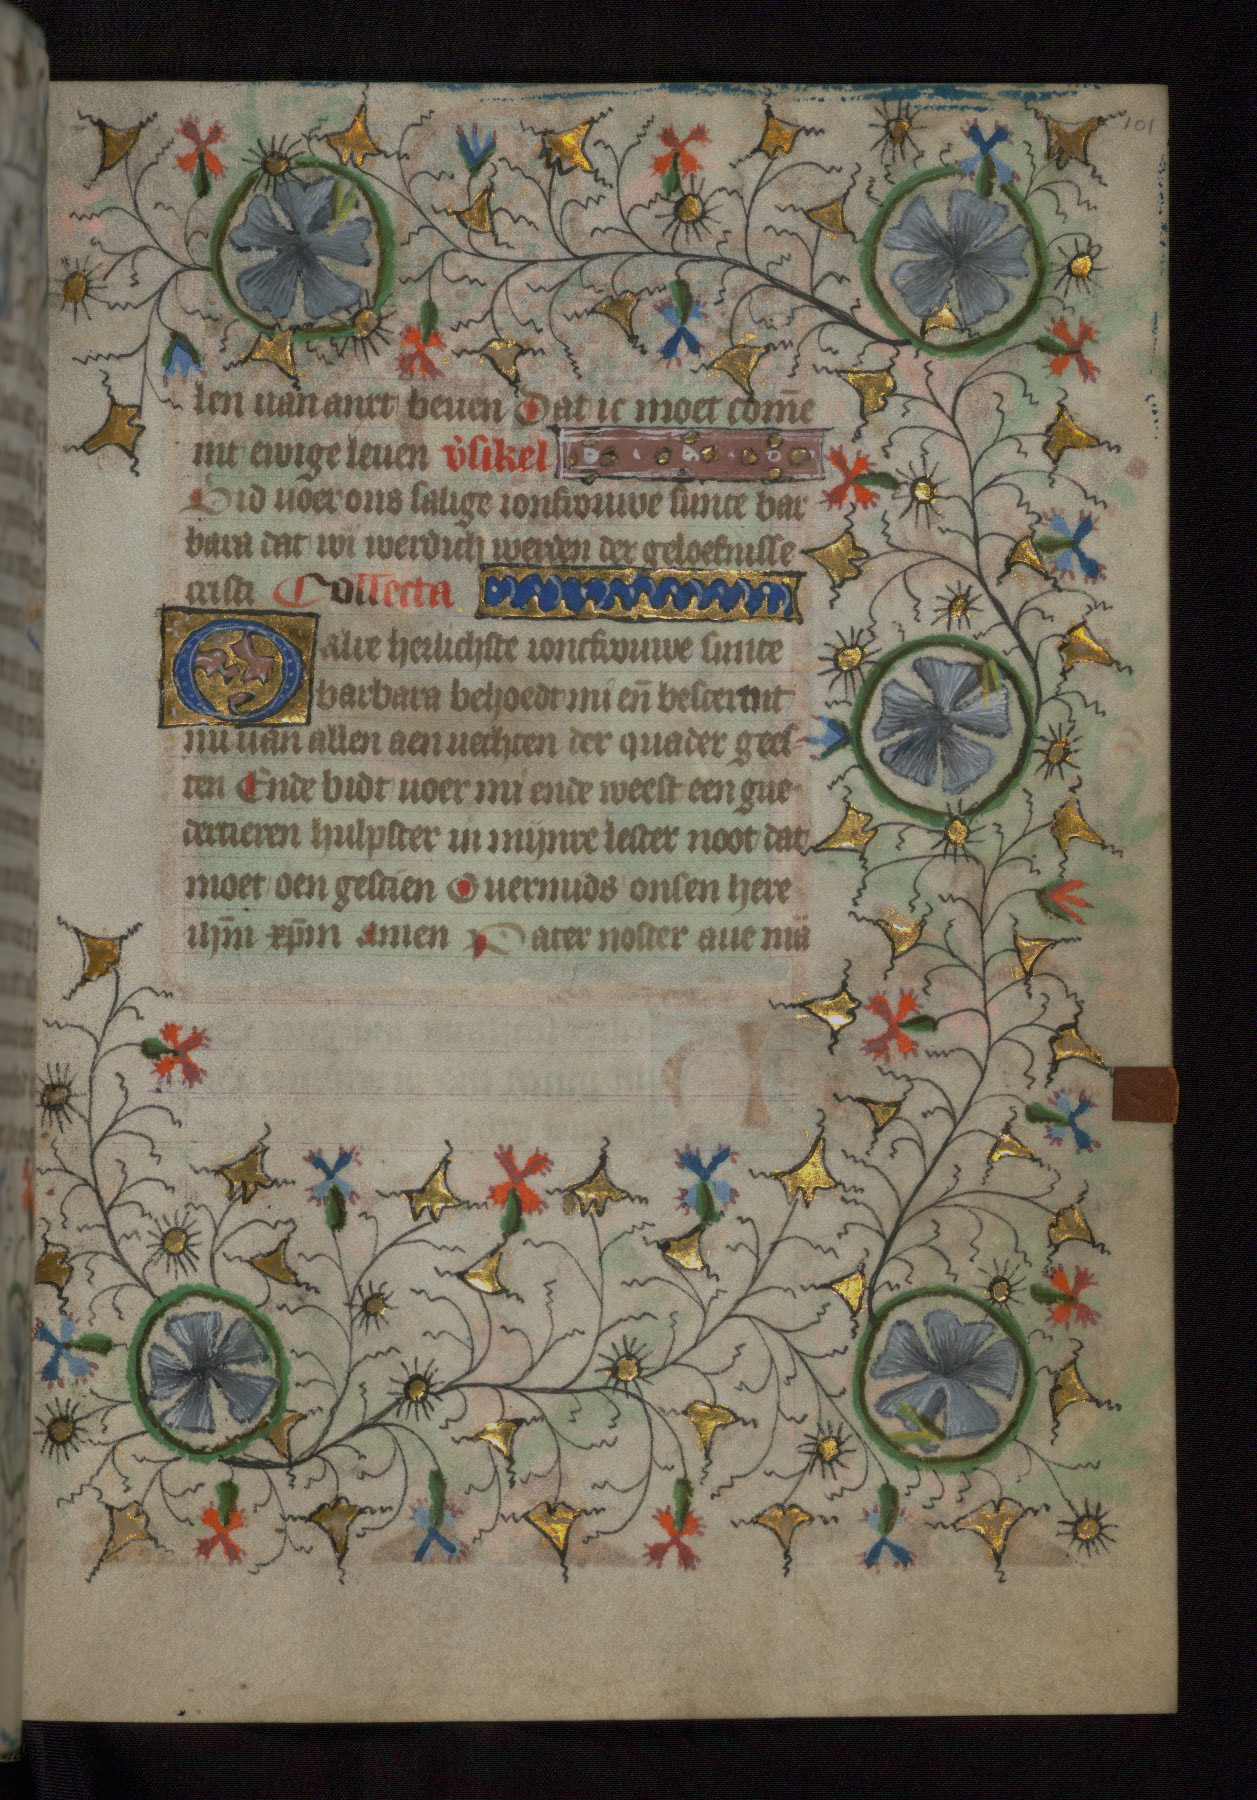 101
len uan anxt beuen Dat ic moet comē
int ewige leuen v̓sikel
Bid uoer ons salige ionfrouwe sunte bar
bara dat wi werdich werden der geloefnisse
cristi Collecta
O alre heilichste ioncfrouwe sunte
barbara behoedt mi en̄ beschermt
nu uan allen aenuechten der quader gees-
ten Ende bidt uoer mi ende weest een gue-
dertieren hulpster in mijnre lester noot dat
moet oen gescien Ouermids onsen here
ihm̄ xp̄m Amen Pater noster aue mā